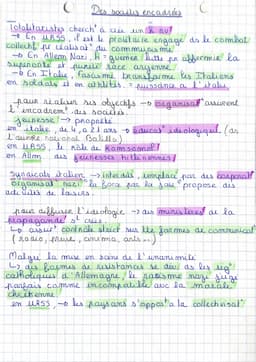 Des sociétés encadrées
Totalitarismes cherch° à créer un "h nv"
→ En URSS, c'est le prolétaire engagé ds le combat
collectif pr réalisat° du communisme
→ En Allem Nazi, H = guerrier lutte pr affermir la
supériorité et pureté race aryenne.
→ En Italie, fascisme transforme les Italiens
en soldats et en athlètes. = puissance de l'italie.
pour réaliser ses objectifs → organisat° assurent
l'encadrem° des sociétés.
jeunesse → propriété
en italie, de 4 à 21 ans → éducat° idéologique (ds
l'œuvre national Balilla)
en URSS, le rôle du Komsomol
en Allm des jeunesses hitleriennes
Syndicats italien → interdits, remplacé par des corporat°
organisat° nazi la force par la joie propose des
activités de loisirs.
pour diffuser l'idéologie → des ministères de la
propagande st créés
↳ assur° contrôle strict sur tte formes de communicat°
(radio, presse, cinéma, arts...)
Malgré la mise en scène de l'unanimité
→ des formes de résistances se dév ds les
catholiques d'Allemagne, le nazisme jugé
parfois comme incompatible avec la morale
chrétienne.
en URSS, → les paysans s'oppos° à la collectivisat°